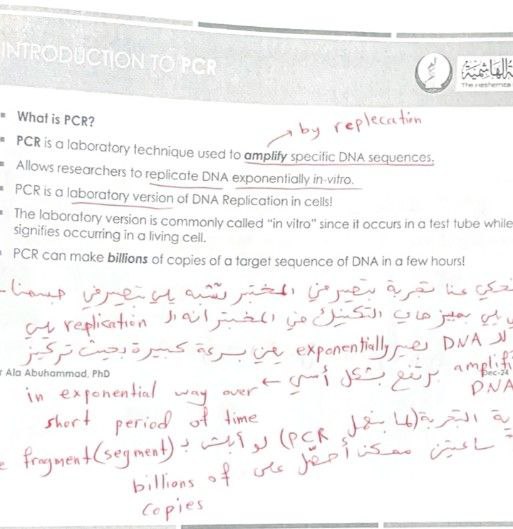 INTRODUCTION TO PCR
The Hashemite
What is PCR?
by replecation
PCR is a laboratory technique used to amplify specific DNA sequences.
Allows researchers to replicate DNA exponentially in-vitro.
PCR is a laboratory version of DNA Replication in cells!
The laboratory version is commonly called "in vitro" since it occurs in a test tube while
signifies occurring in a living cell.
PCR can make billions of copies of a target sequence of DNA in a few hours!
نحكي عنا تجربة بتصير في المختبر تشبه يلي بتصير في جسمنا
يلي بميز هاي التكنيك في المختبر انه ال replication يلي
لل DNA بصير exponentially يعني بسرعة كبيرة بحيث تركيز
r Ala Abuhammad, PhD
Dec-24
amplifi DNA يرتفع بشكل أسي ←
in exponential way over
short period of time
التجربة (لما بنعمل PCR) لو
fragment (segment)
ساعتين ممكن أحصل على
billions of
copies